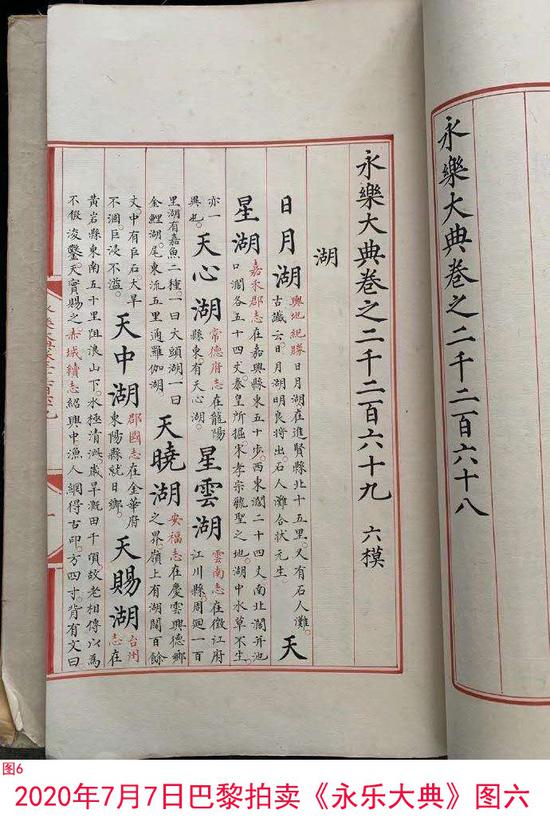 永樂大典卷之二千二百六十八
永樂大典卷之二千二百六十九 六模
湖
日月湖 輿地紀勝日月湖在進賢縣北十五里又有石人灘
古讖云日月湖明良將出石人灘合狀元生 天
星湖 嘉禾郡志在嘉興縣東五十步西東濶二十四丈南北濶并池
口濶各五十四丈秦皇所掘宋孝宗毓聖之地湖中水草不生
亦一
異也 天心湖 常德府志在龍陽
縣東有天心湖 星雲湖 雲南志在徵江府
江川縣周廻一百
里湖有嘉魚二種一曰大頭湖一曰
金鯉湖尾東流五里通羅伽湖 天曉湖 安福志在慶雲興德鄉
之界嶺上有湖闊百餘
丈中有巨石大旱
不涸巨浸不溢 天中湖 郡國志在金華府
東陽縣就日鄉 天賜湖 台州
志在
黃岩縣東南五十里阻浪山下水極清澈歲旱溉田千頃故老相傳以為
不假浚鑿天實賜之赤城續志紹興中漁人網得古印方四寸背有文曰
图6
2020年7月7日巴黎拍卖《永乐大典》图六